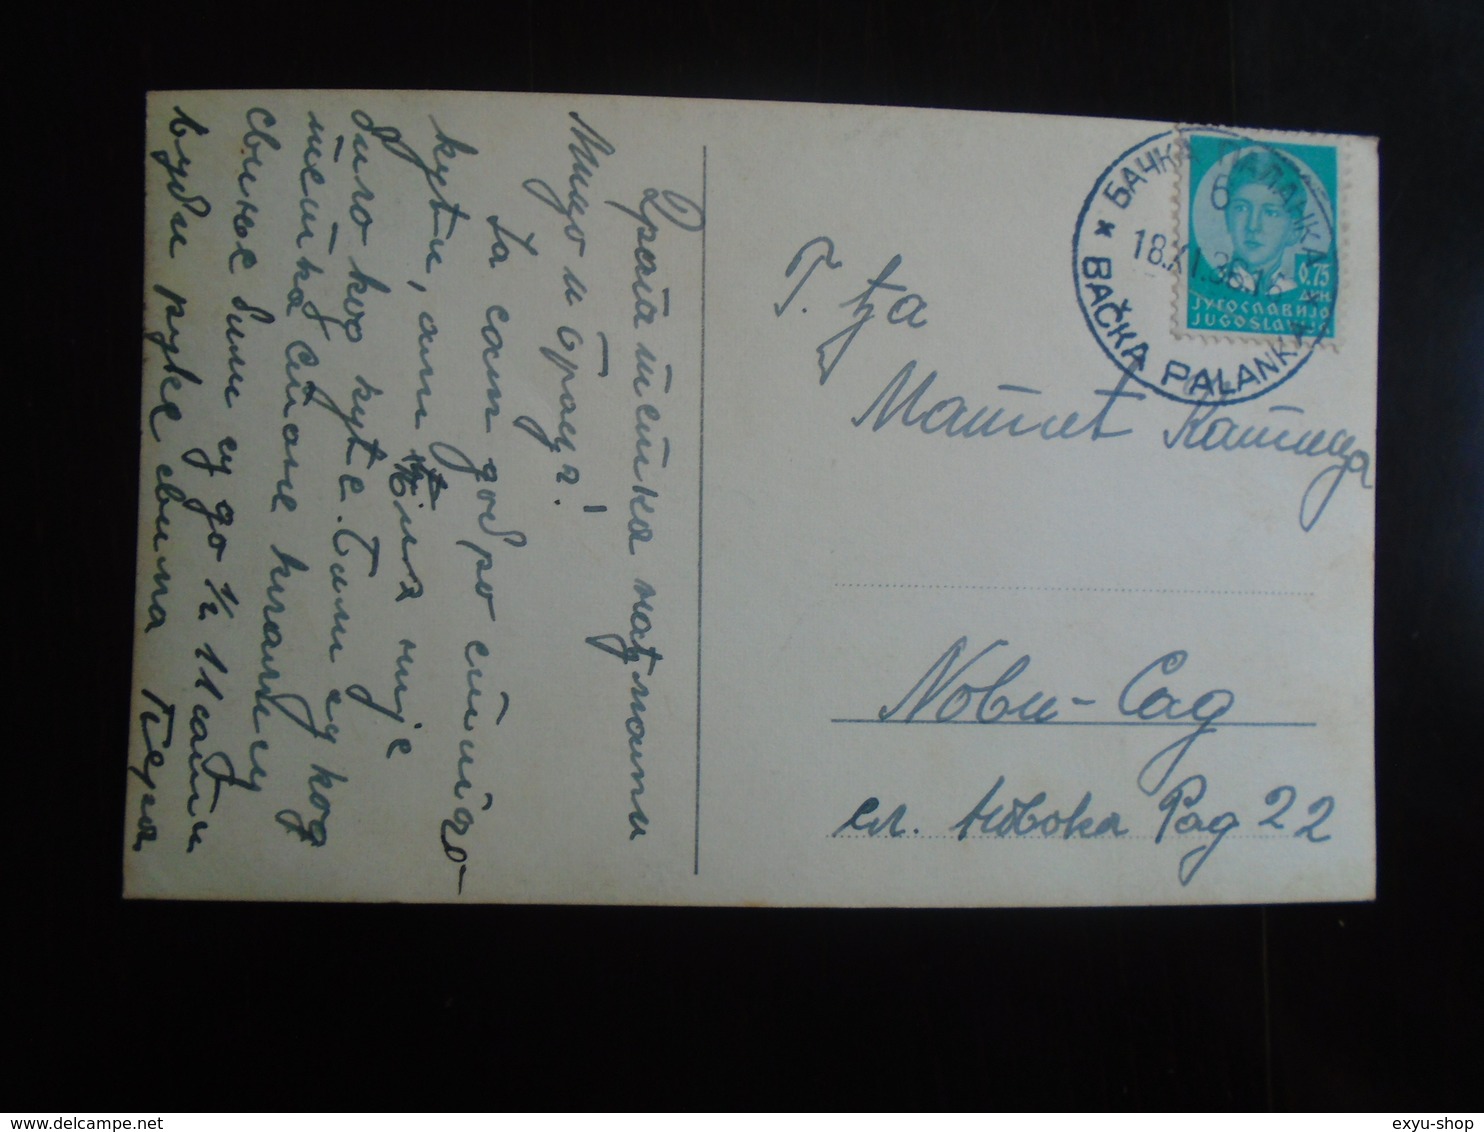 Драга тетка нађмати
Мицо и браца!
Ја сам добро стигао
кући, али
није
било код куће. Били су код
тетка Стане клали су
свиње били су до ½ 11 сати
људи руке свима Пера
Г. ђа
Катица
Нови-Сад
ул. Новака Рад 22
БАЧКА ПАЛАНКА
6
18.XI.36.16
BAČKA PALANKA
0.75
ДИН.
ЈУГОСЛАВИЈА
JUGOSLAVIJA
www.delcampe.net
exyu-shop